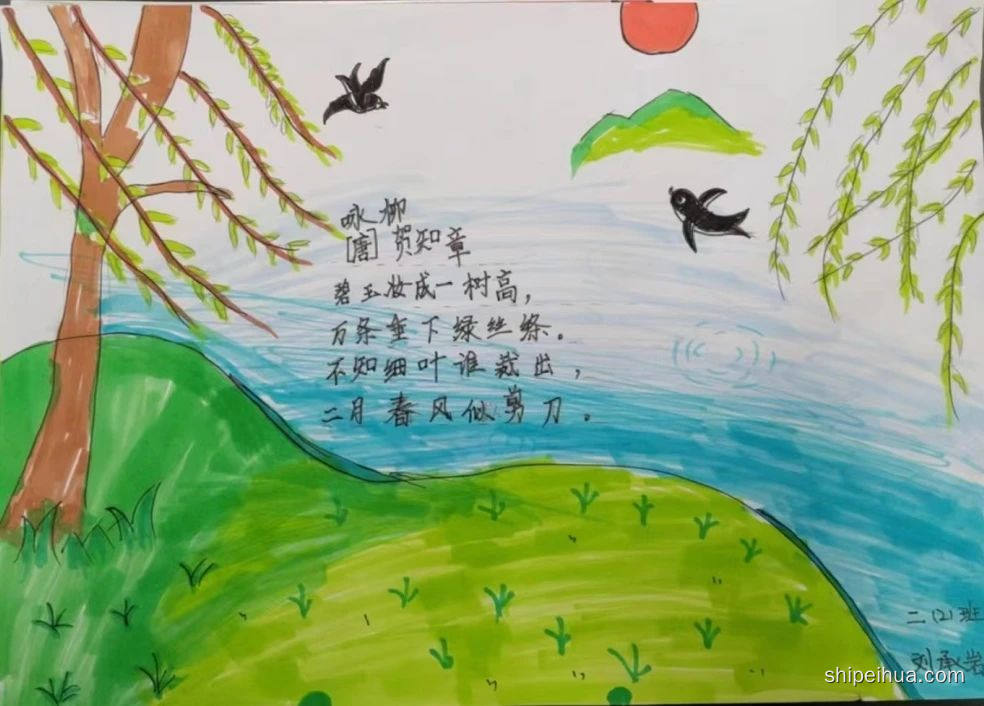 咏柳
[唐] 贺知章
碧玉妆成一树高，
万条垂下绿丝绦。
不知细叶谁裁出，
二月春风似剪刀。
二(2)班
刘承岩
shipeihua.com